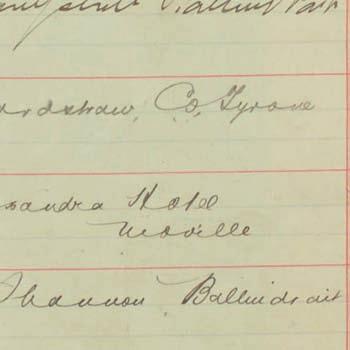 ardshaw, Co, Tyrone
sandra Hotel
Moville
Shannon Ballindrait